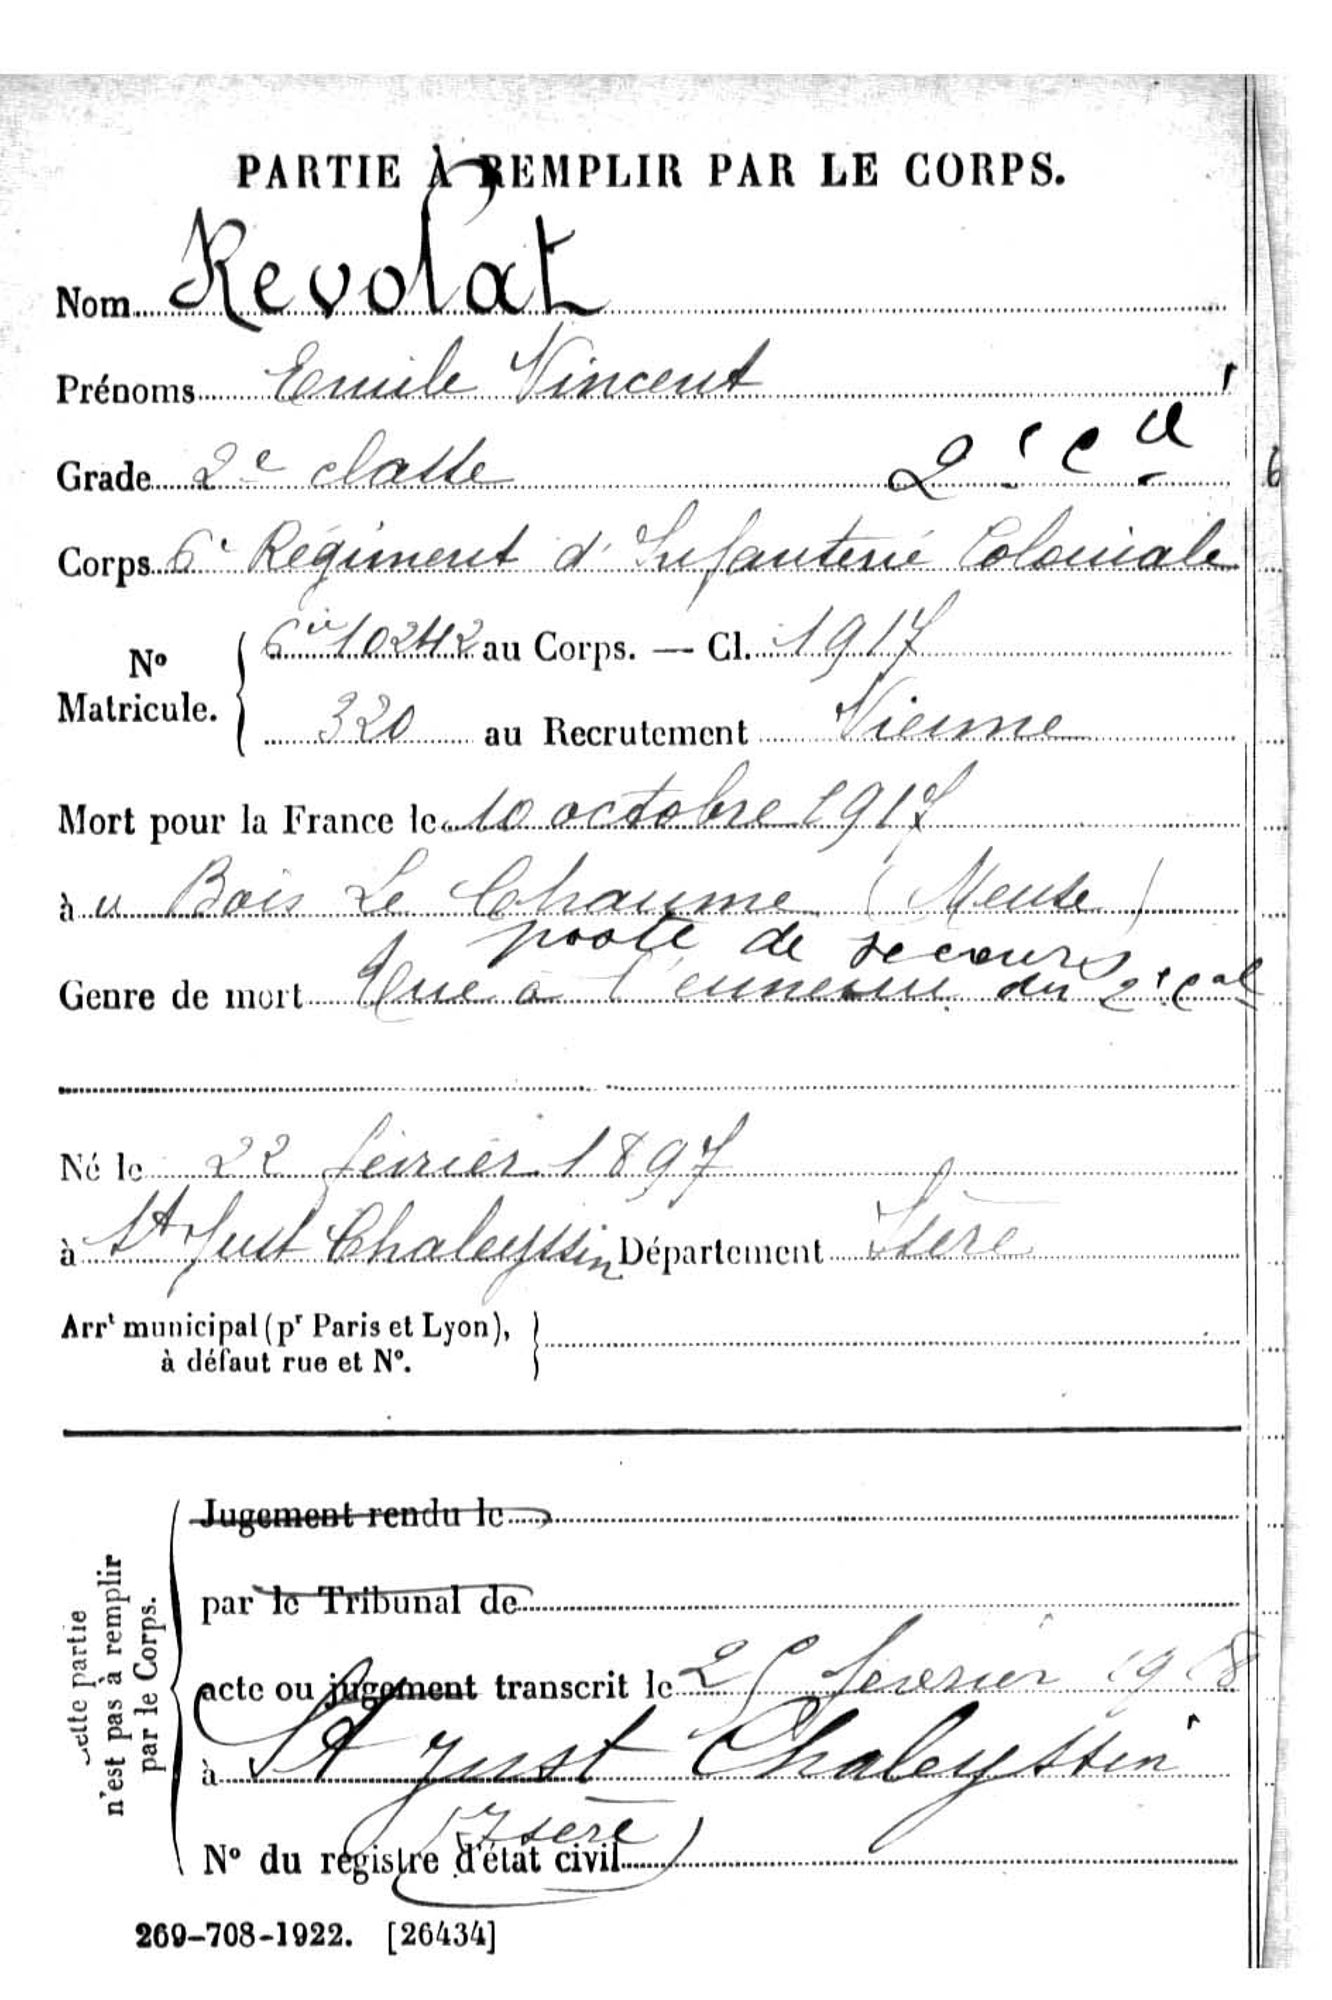 PARTIE À REMPLIR PAR LE CORPS.
Nom Revolat
Prénoms Emile Vincent
Grade 2e classe 2e Cie
Corps 6e Régiment d'Infanterie Coloniale
No Matricule. 10242 au Corps. — Cl. 1917
320 au Recrutement Vienne
Mort pour la France le 10 octobre 1917
à u Bois Le Chaume (Meuse)
poste de secours
Genre de mort Tué à l'ennemi du 2e
Né le 22 février 1897
à St Just Chaleyssin Département Isère
Arrt municipal (pr Paris et Lyon),
à défaut rue et No.
Cette partie
n'est pas à remplir
par le Corps.
Jugement rendu le
par le Tribunal de
acte ou jugement transcrit le février 1918
à St Just Chaleyssin
(Isère)
No du registre d'état civil
269-708-1922. [26434]